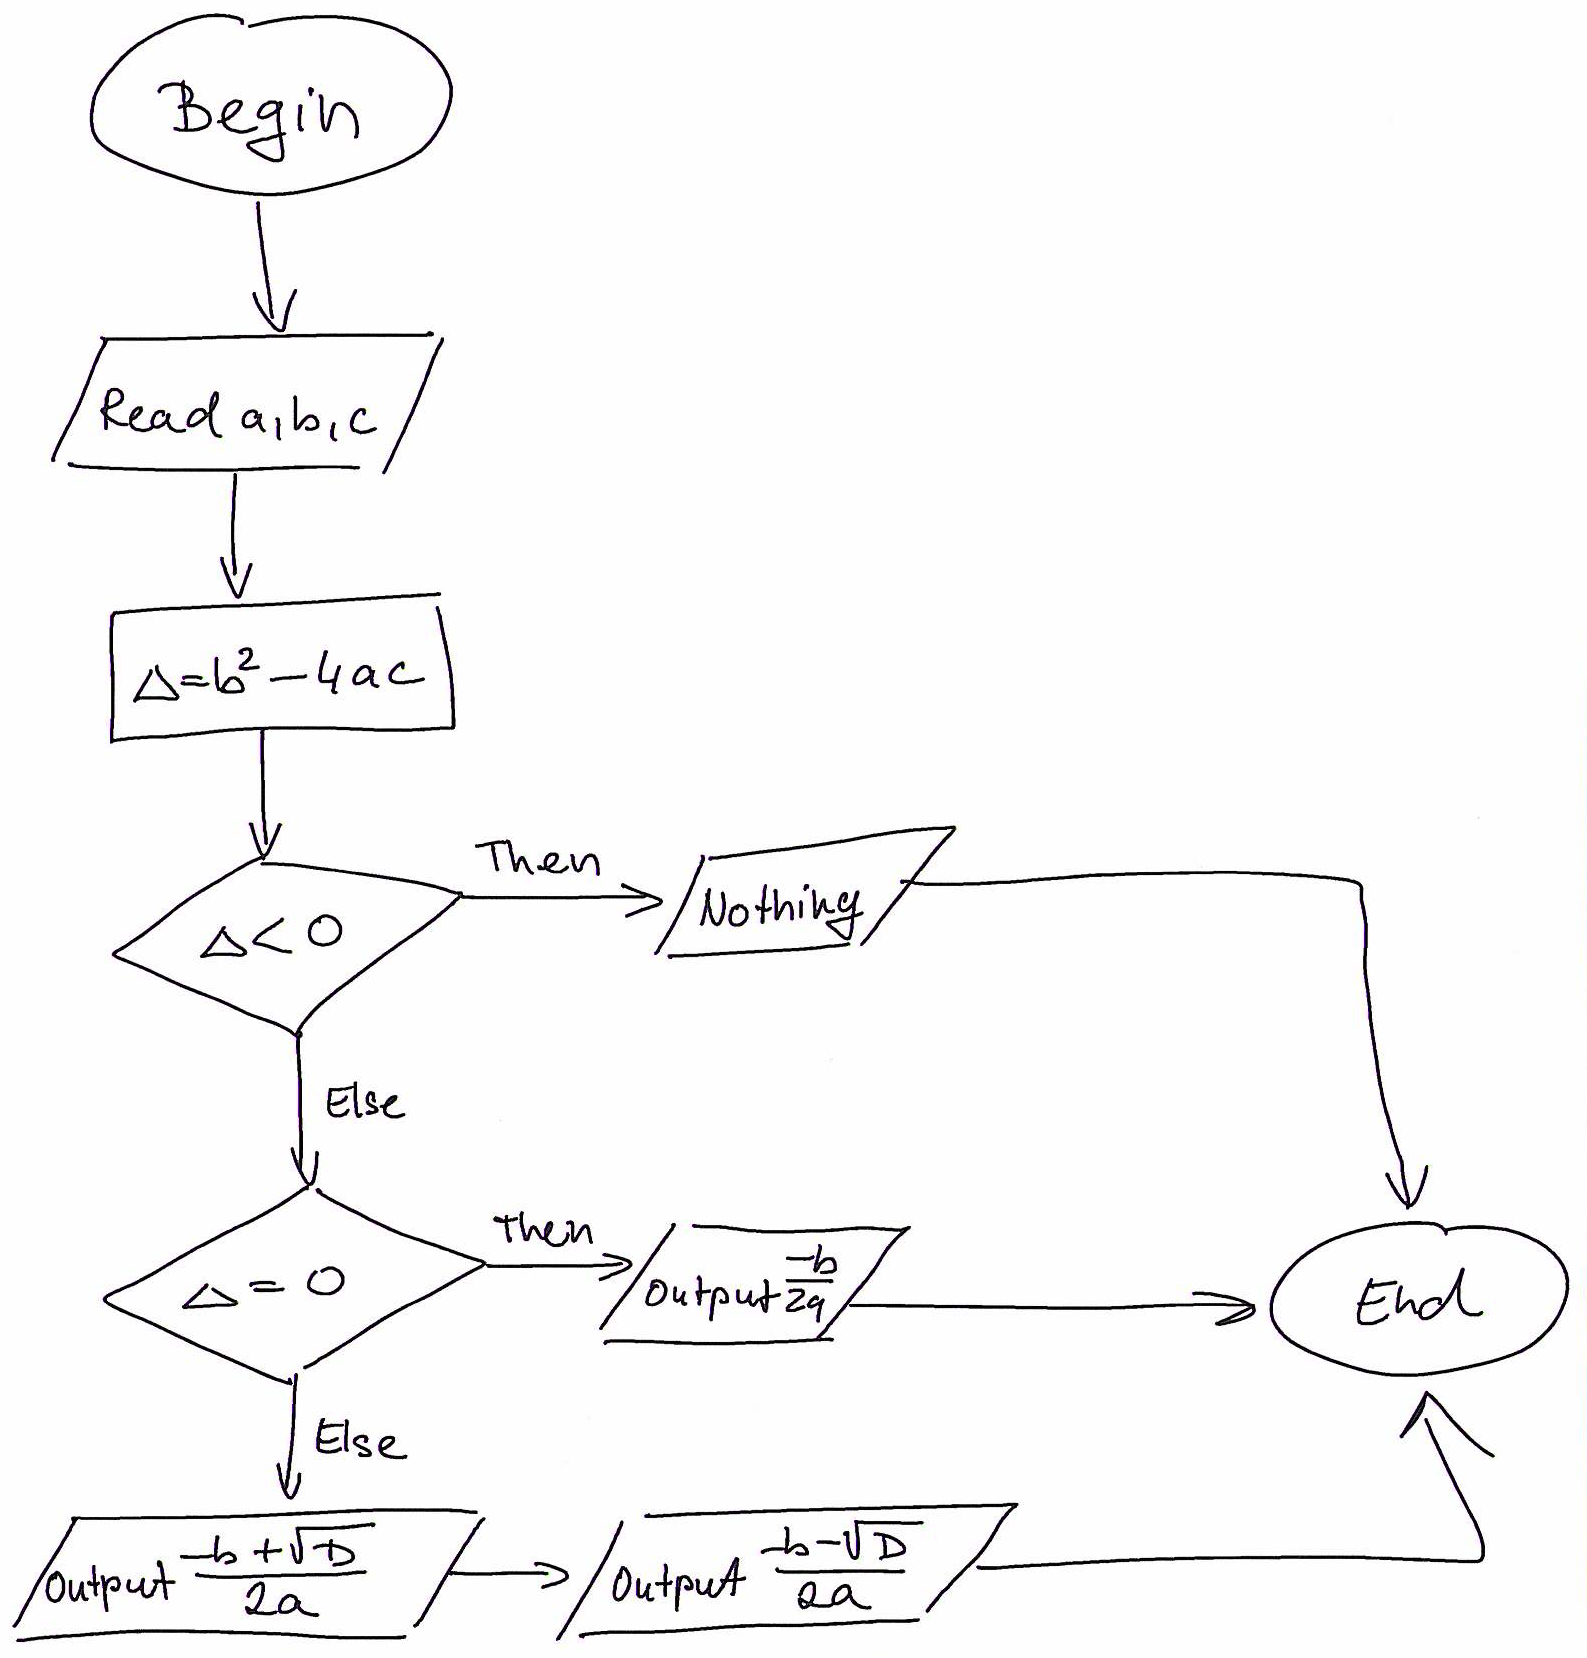 Begin
Read a, b, c
Δ=b²-4ac
Δ< 0
Then
Nothing
Else
Δ= 0
Then
Output -b/2a
End
Else
Output -b+√D/2a
Output -b-√D/2a